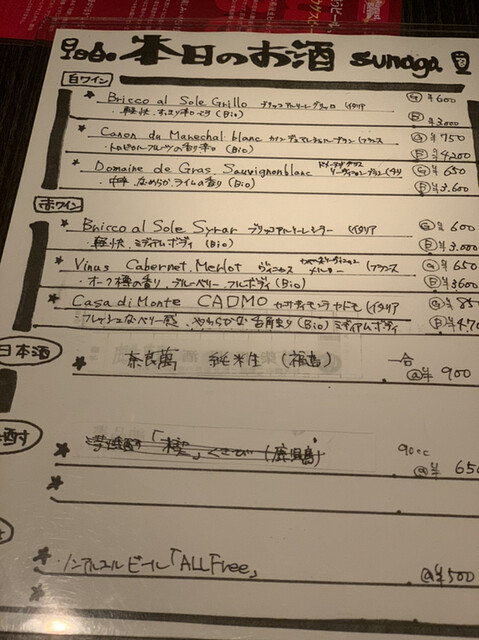 本日のお酒 sunaga
白ワイン
Bricco al Sole Grillo ブリッコアルソーレグリッロ イタリア G ¥600
・軽快 (Bio) B ¥3.000
Canon du Marechal blanc カノンデュマレシャルブラン フランス G ¥750
・トロピカルフルーツの香り (Bio) B ¥4.200
Domaine de Gras Sauvignonblanc ドメーヌデグラス ソーヴィニヨンブラン チリ G ¥650
・中甘 なめらか ライムの香り (Bio) B ¥3.600
赤ワイン
Bricco al Sole Syrar ブリッコアルソーレシラー イタリア G ¥600
・軽快 ミディアムボディ (Bio) B ¥3.000
Vinus Cabernet.Merlot ヴィニウス カベルネソーヴィニヨン メルロー フランス G ¥650
・オーク樽の香り ブルーベリー フルボディ (Bio) B ¥3600
Casa di Monte CADMO カーサディモンテ カドモ イタリア G ¥
・フレッシュなベリー感 やわらかな舌触り (Bio) ミディアムボディ B ¥4.70
日本酒
奈良萬 純米生 (福島) 一合 @¥ 900
芋焼酎「樴」くさび (鹿児島) 90cc @¥ 650
・ノンアルコールビール「ALL Free」 @¥500